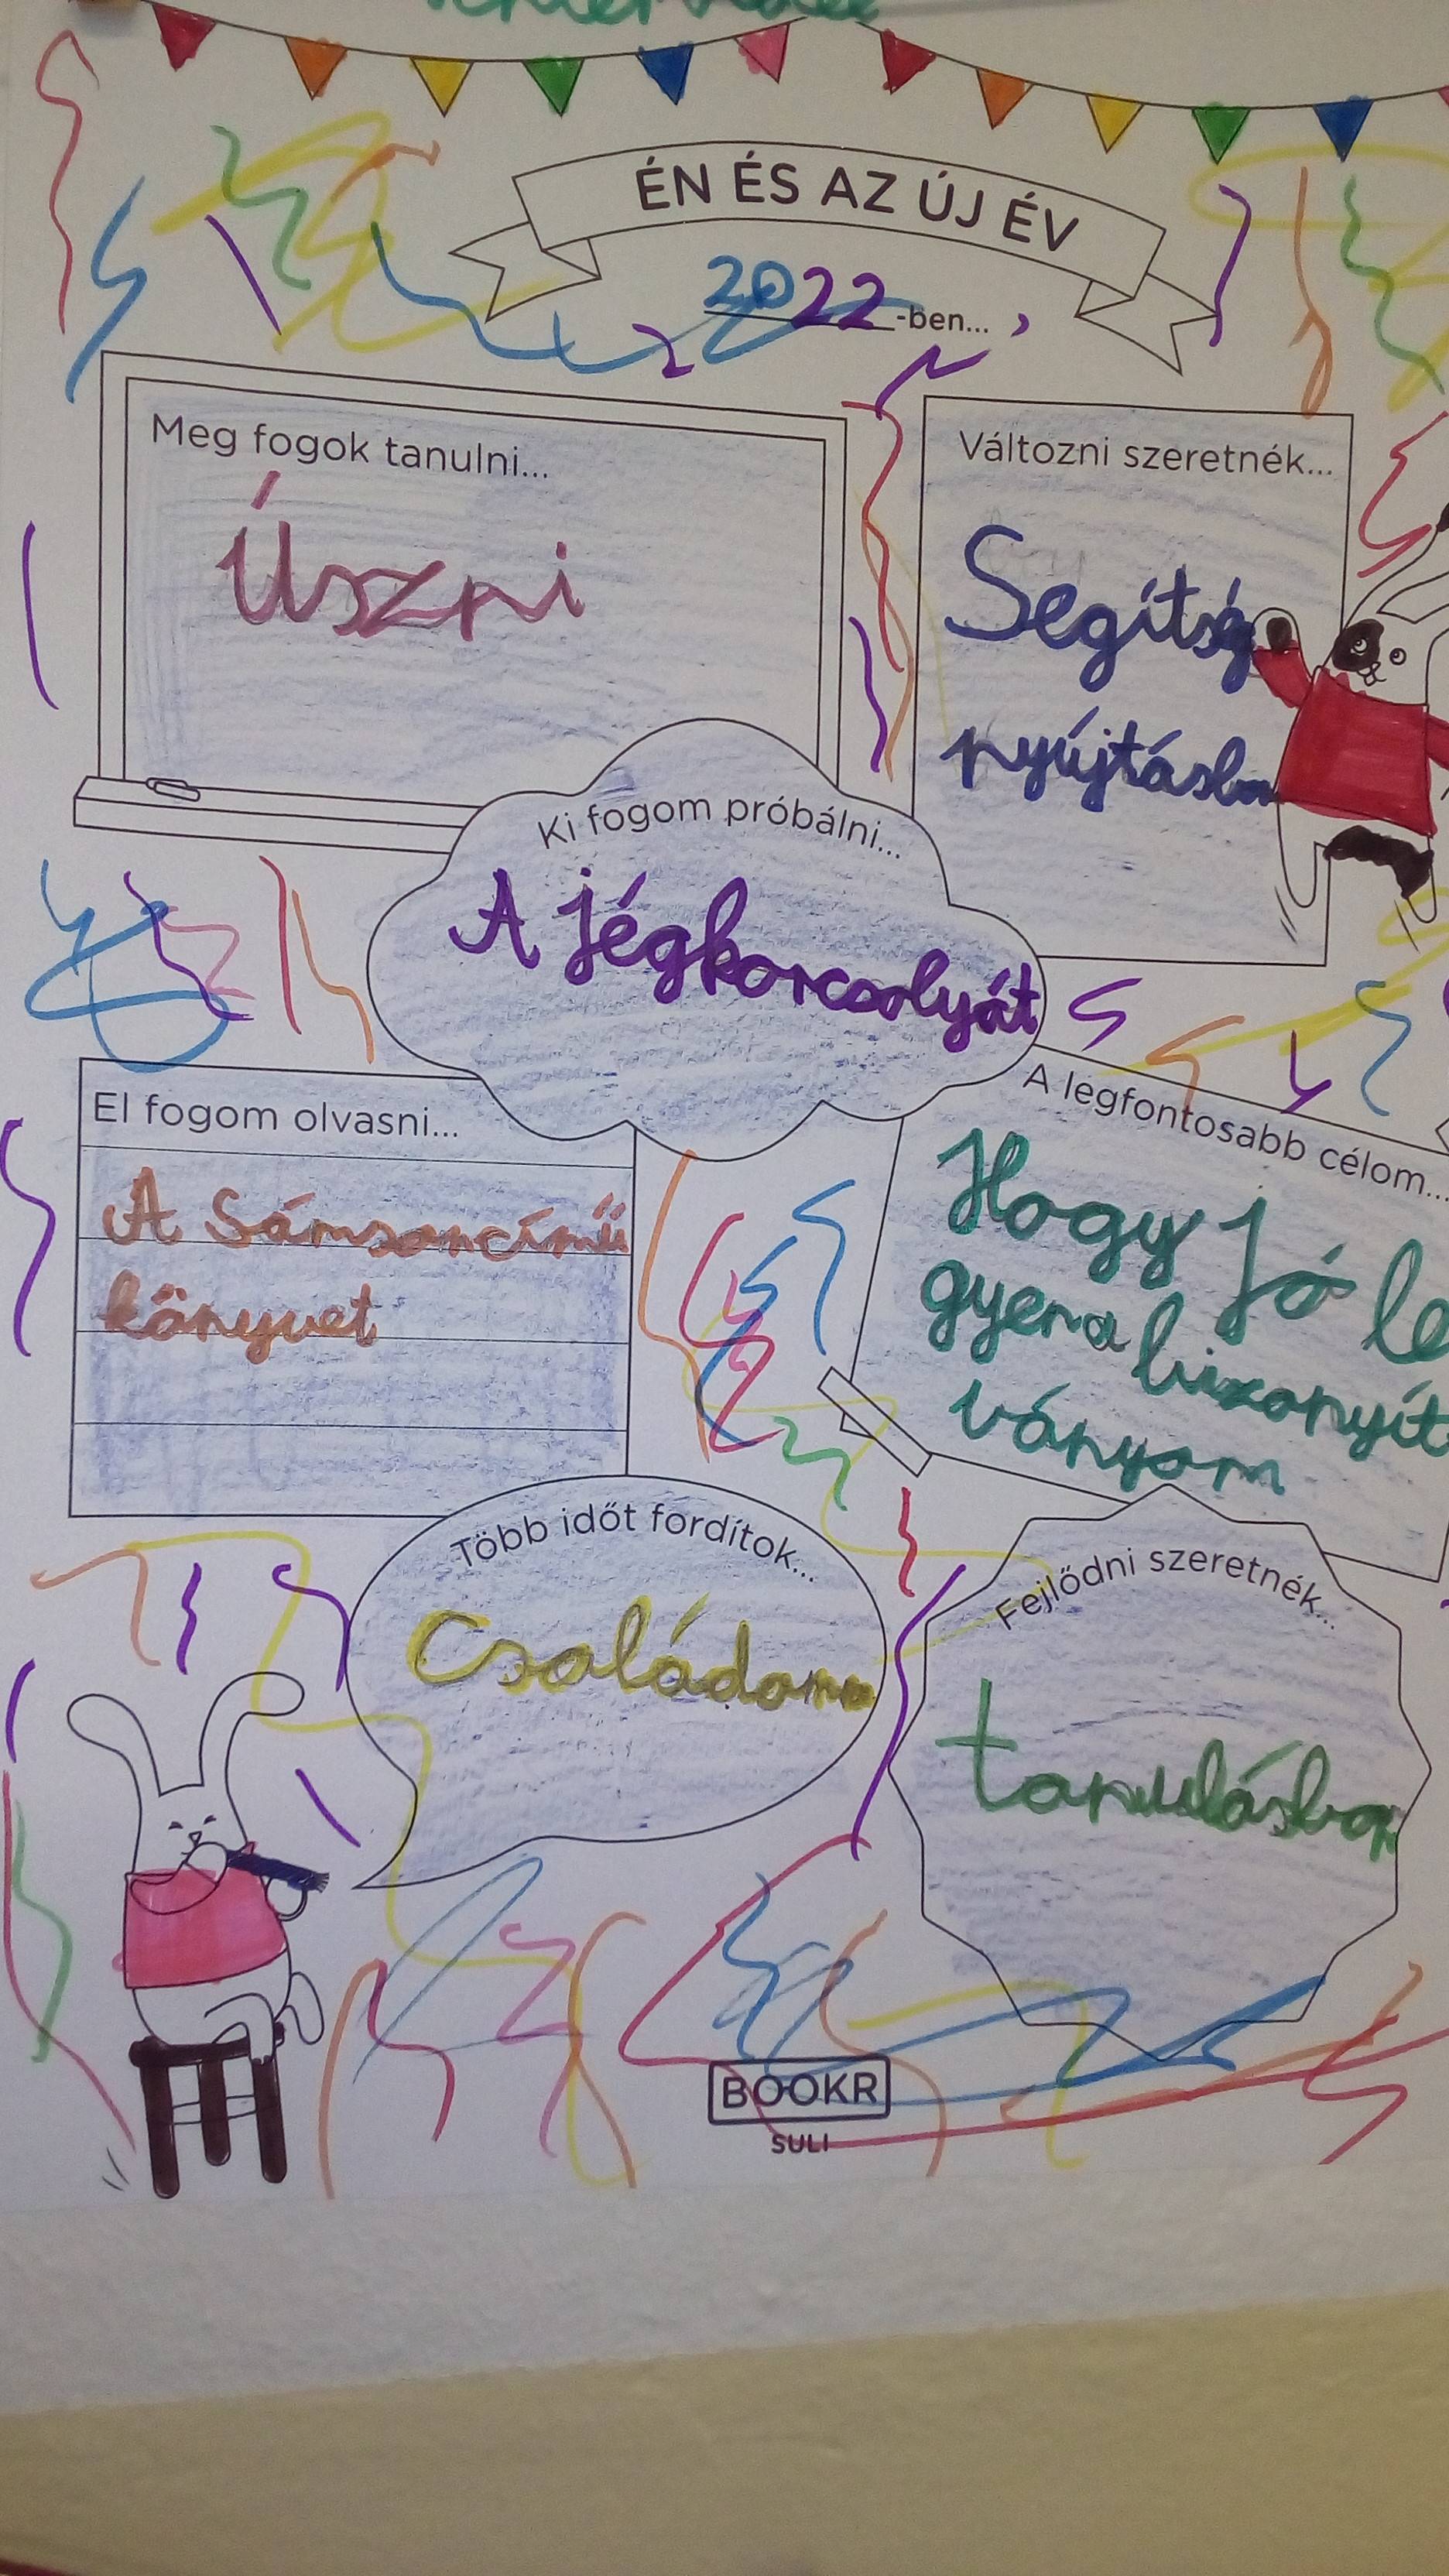 ÉN ÉS AZ ÚJ ÉV
2022-ben...
Meg fogok tanulni...
Úszni
Változni szeretnék...
Segítség
nyújtásban
Ki fogom próbálni...
A jégkorcsolyát
El fogom olvasni...
A Sámsoncímű
könyvet
A legfontosabb célom...
Hogy jó le
gyena bizonyít
ványom
Több időt fordítok...
Családomra
Fejlődni szeretnék...
tanulásban
BOOKR
SULI